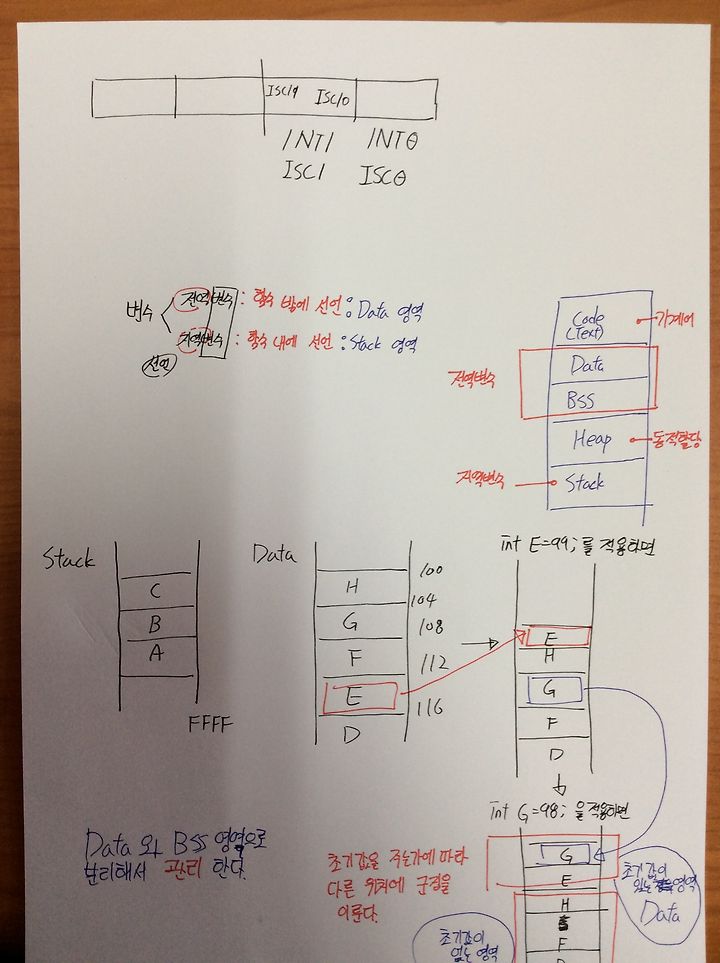 ISC11 ISC10
INT1 INT0
ISC1 ISC0
변수
전역변수 : 함수 밖에 선언 : Data 영역
지역변수 : 함수 내에 선언 : Stack 영역
선언
Code
(Text)
기계어
전역변수
Data
BSS
Heap
동적할당
지역변수
Stack
Stack
C
B
A
FFFF
Data
100
H
104
G
108
F
112
E
116
D
int E=99; 를 적용하면
E
H
G
F
D
int G=98; 을 적용하면
G
E
H
F
D
Data 와 BSS 영역으로
분리해서 관리 한다.
초기값을 주는가에 따라
다른 위치에 군집을
이룬다.
초기값이
있는 영역
Data
초기값이
없는 영역